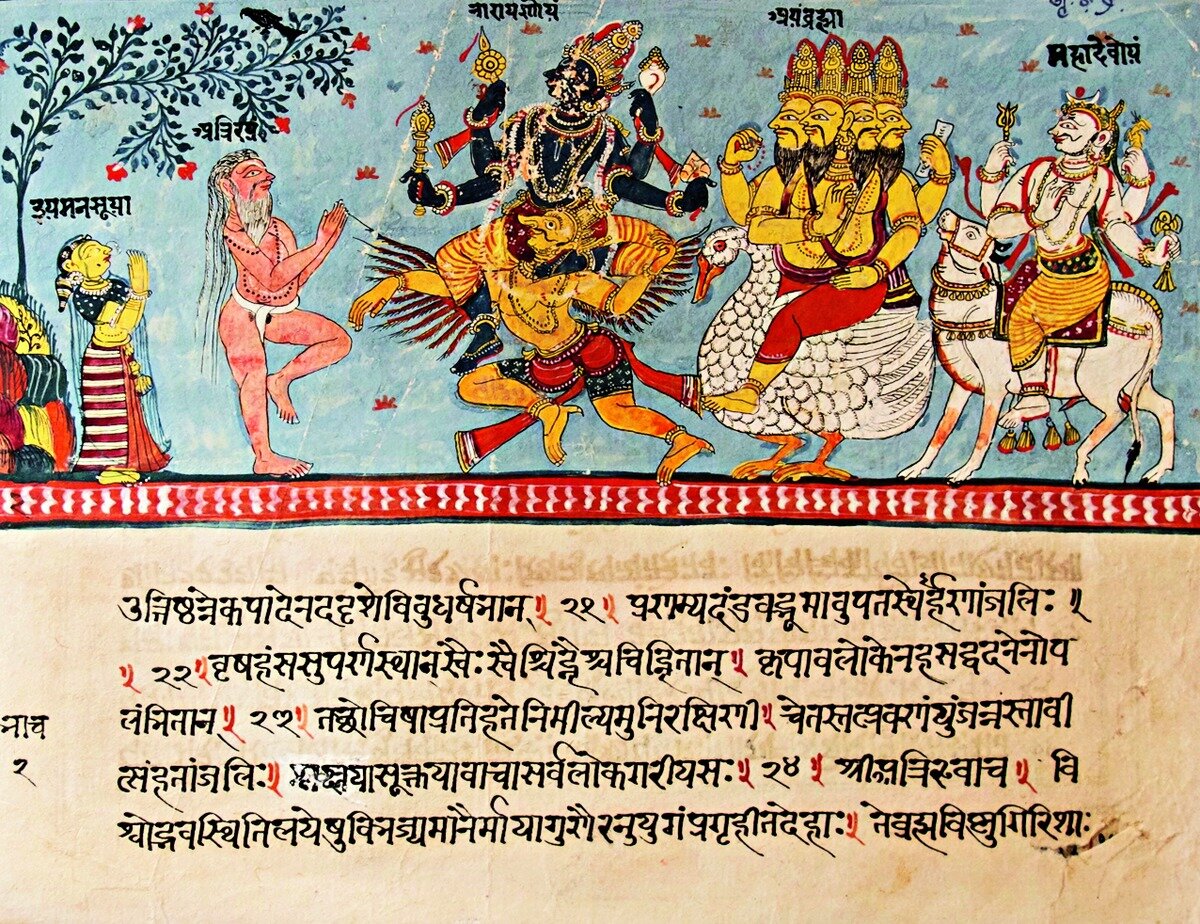 नारायणोयं
अयंब्रह्मा
महादेवोयं
अत्रिरयं
इयमनसूया
उत्तिष्ठन्नेकपादेनददृशेविबुधर्षभान् ॥ २१ ॥ प्रणम्यदंडवद्भूमावुपतस्थेर्हणांजलिः ॥
॥ २२ ॥ वृषहंससुपर्णस्थान्स्वैः स्वैश्चिह्नैश्चचिह्नितान् ॥ कृपावलोकेनहसद्वदनेनोप
लंभितान् ॥ २३ ॥ तद्रोचिषाप्रतिहतेनिमील्यमुनिरक्षिणी ॥ चेतस्तत्प्रवणंयुंजन्नस्तावी
त्संहतांजलिः ॥ श्लक्ष्णयासूक्तयावाचासर्वलोकगरीयसः ॥ २४ ॥ श्रीअत्रिरुवाच ॥ वि
श्वोद्भवस्थितिलयेषुविभज्यमानैर्मायागुणैरनुयुगंप्रगृहीतदेहाः ॥ तेब्रह्मविष्णुगिरिशाः
२